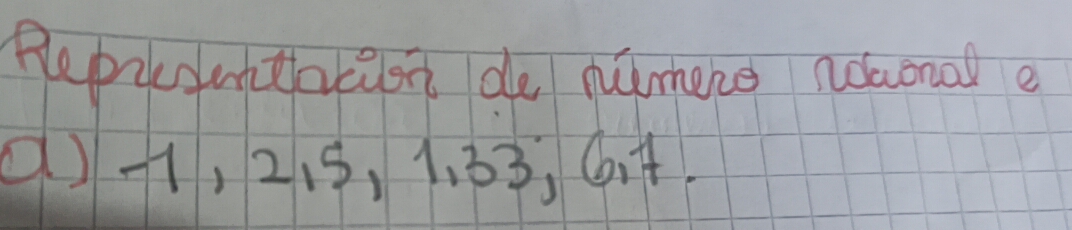 Representación de número racional e
a) -1, 2,5, 1,33, 6,7.